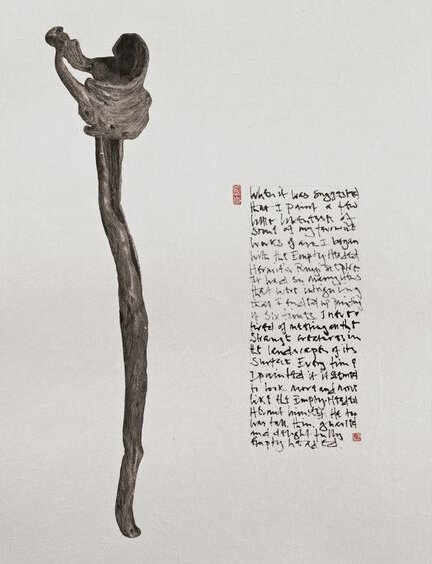 When it was suggested
that I paint a few
little likenesses of
some of my favourite
works of art I began
with the Empty Headed
Hermit's Ruyi
It had so many
that were intriguing
that I ended up painting
it six times I never
tired of meeting all the
strange creatures in
the landscape of its
surface Every time
I painted it it seemed
to look more and more
like the Empty Headed
Hermit himself. He too
was tall, thin, gnarled
and delightfully
empty headed.